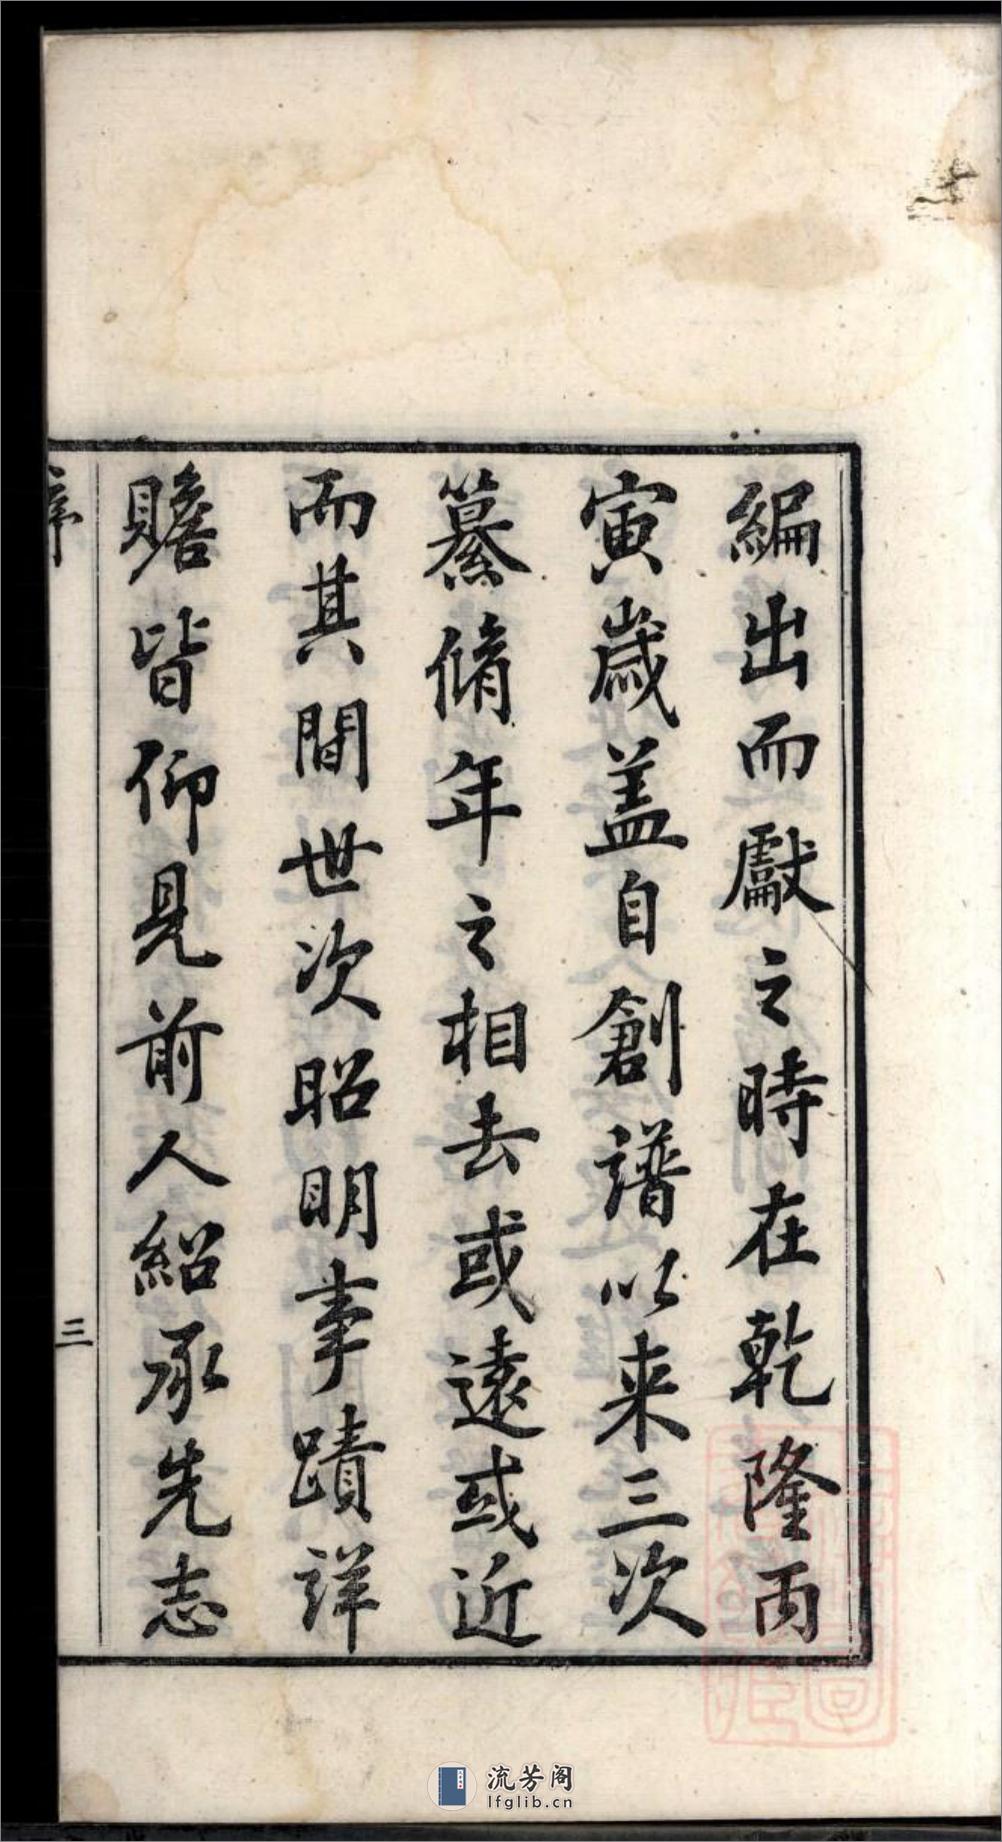 編出而獻之時在乾隆丙
寅歲盖自創譜以来三次
纂脩年之相去或遠或近
而其間世次昭明事蹟詳
贍皆仰見前人紹承先志
序
三
流芳阁
lfglib.cn